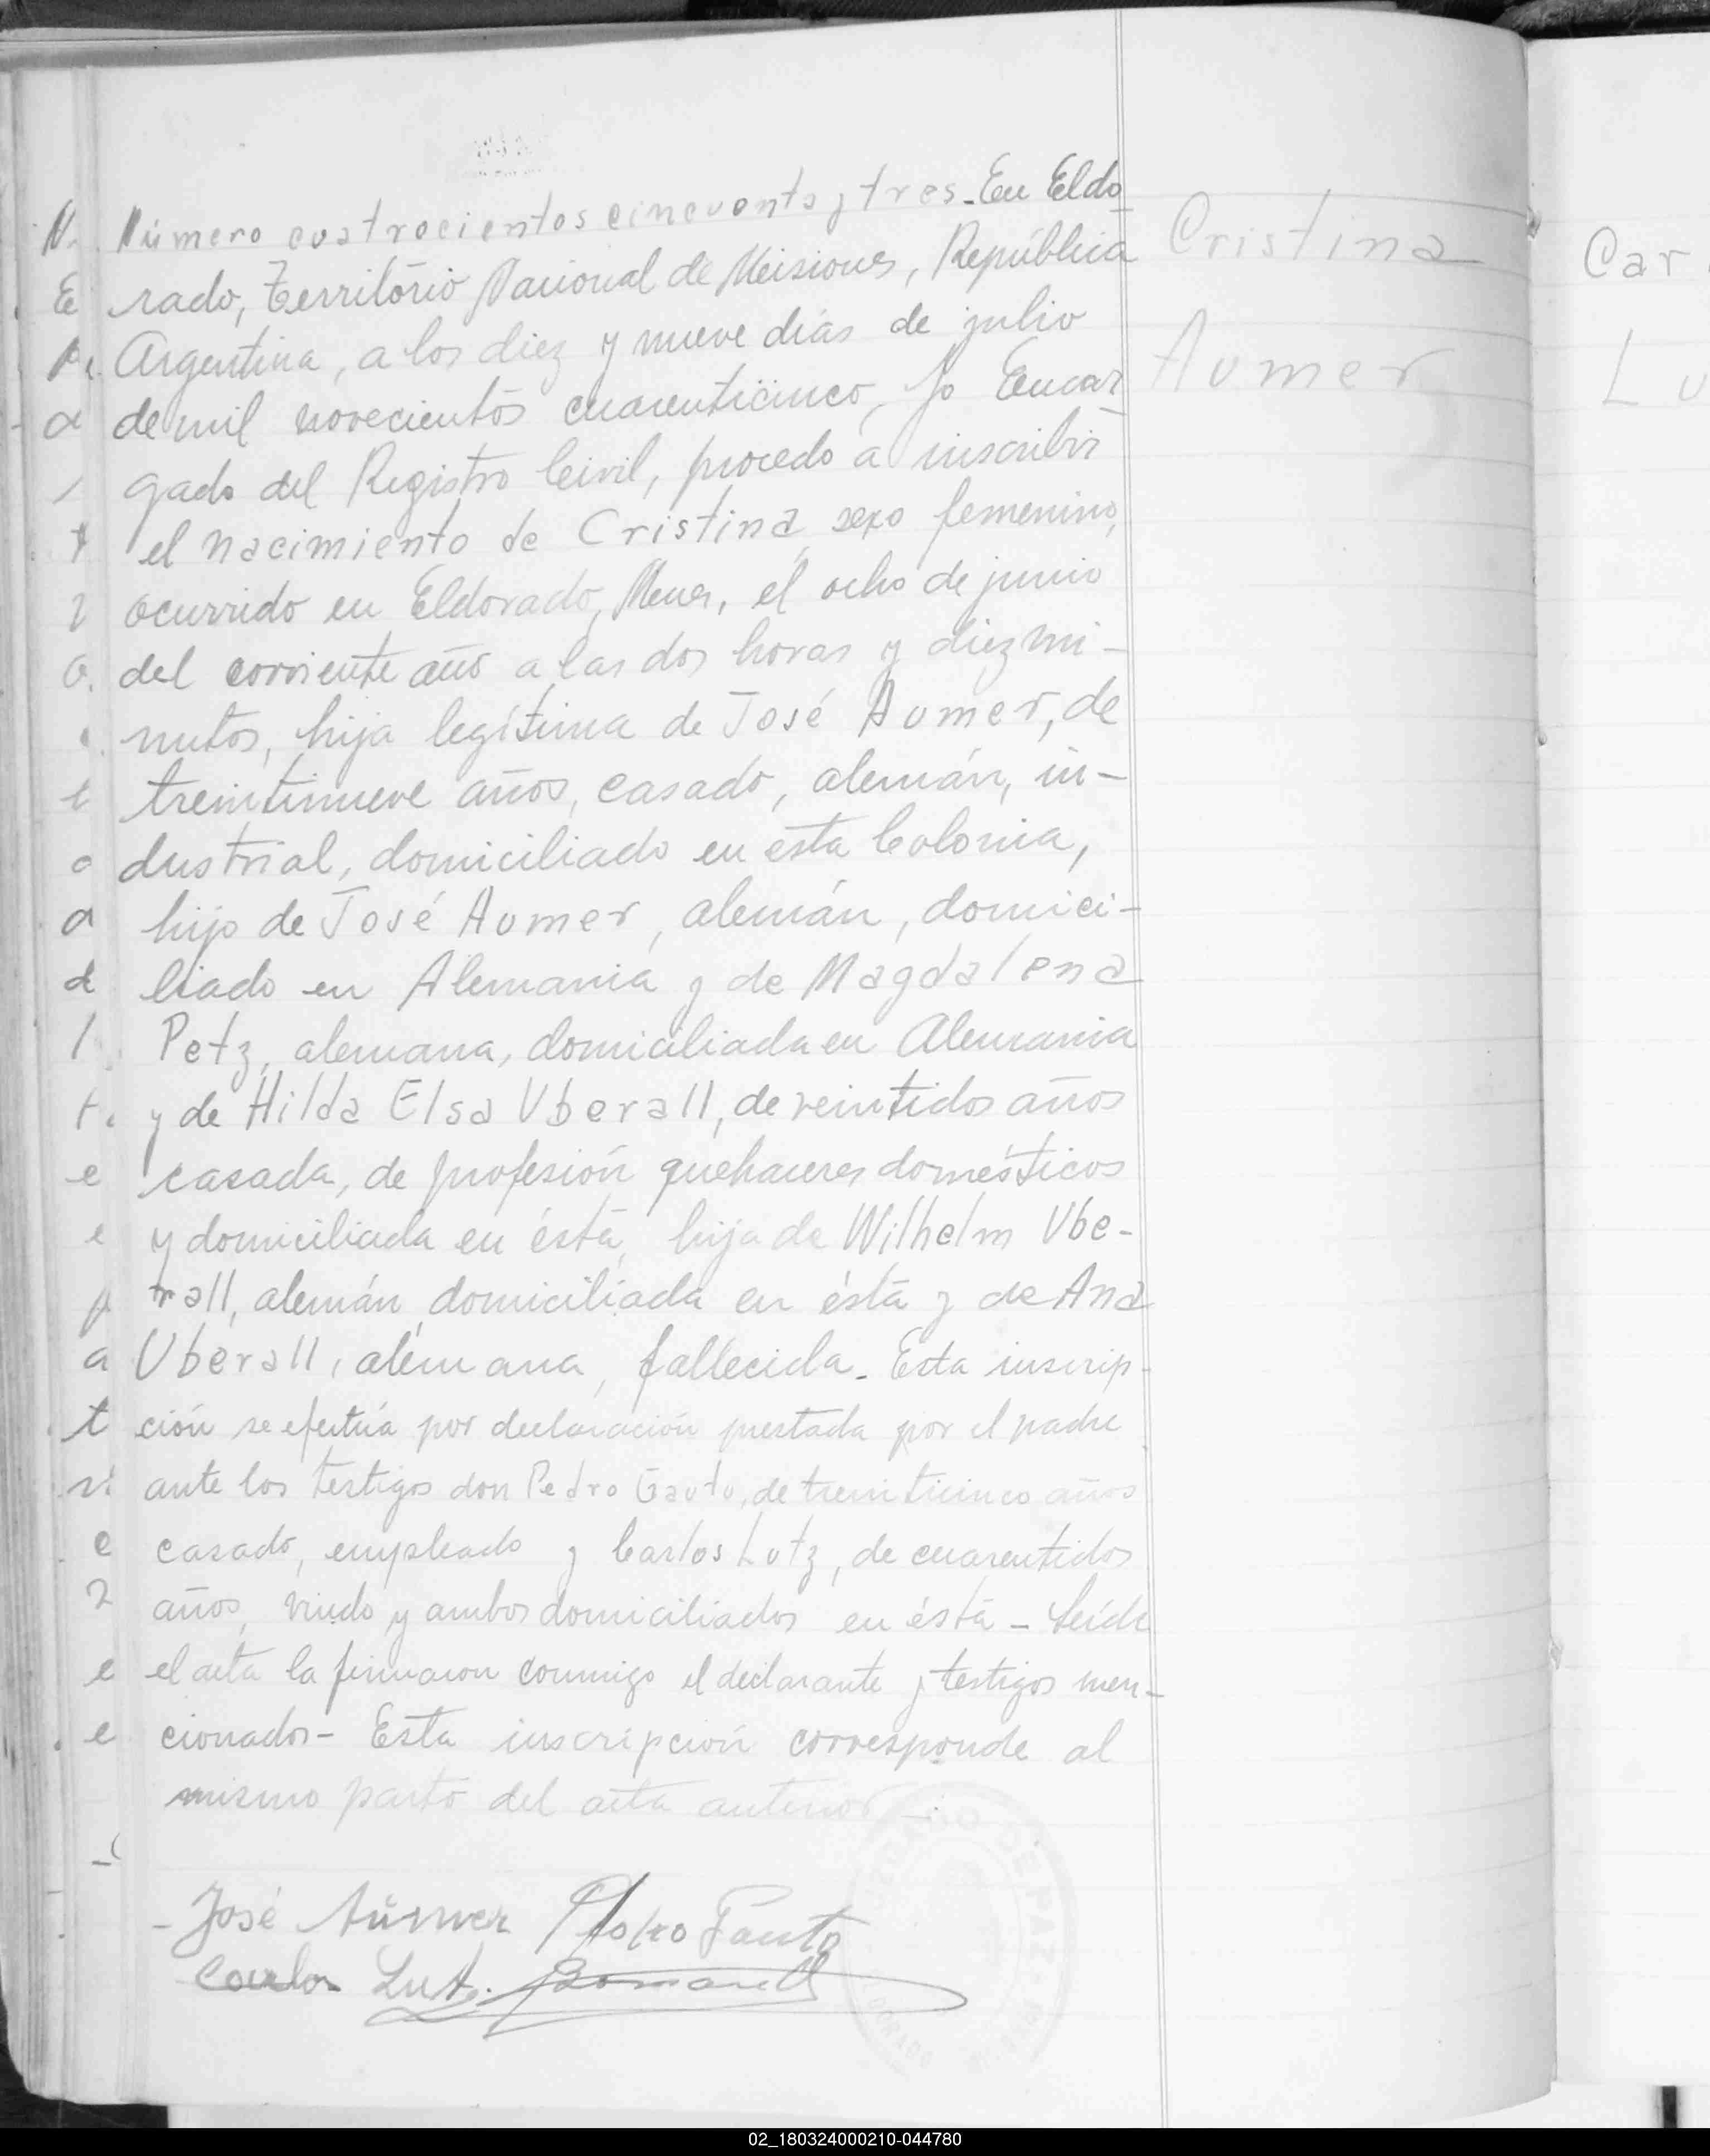 Número cuatrocientos cincuenta y tres - En Eldo
rado, Território Nacional de Misiones, República
Argentina, a los diez y nueve días de julio
de mil novecientos cuarenticinco, yo Encar
gado del Registro Civil, procedo a inscribir
el nacimiento de Cristina, sexo femenino,
ocurrido en Eldorado, Mnes, el ocho de junio
del corriente año a las dos horas y diez mi-
nutos, hija legítima de José Aumer, de
treintinueve años, casado, alemán, in-
dustrial, domiciliado en ésta Colonia,
hijo de José Aumer, alemán, domici-
liado en Alemania y de Magdalena
Petz, alemana, domiciliada en Alemania
y de Hilda Elsa Uberall, de veintidos años
casada, de profesión quehaceres domésticos
y domiciliada en ésta, hija de Wilhelm Ube-
rall, alemán, domiciliada en ésta y de Ana
Uberall, alemana, fallecida - Esta inscrip-
ción se efectúa por declaración prestada por el padre
ante los testigos don Pedro Gauto, de treinticinco años
casado, empleado y Carlos Lutz, de cuarentidos
años, viudo y ambos domiciliados en ésta - Leída
el acta la firmaron conmigo el declarante y testigos men-
cionados - Esta inscripción corresponde al
mismo parto del acta anterior -
Cristina
Aumer
José Aŭmer Pedro Gauto
Carlos Lutz
Car
Lu
DE PAZ
02_180324000210-044780